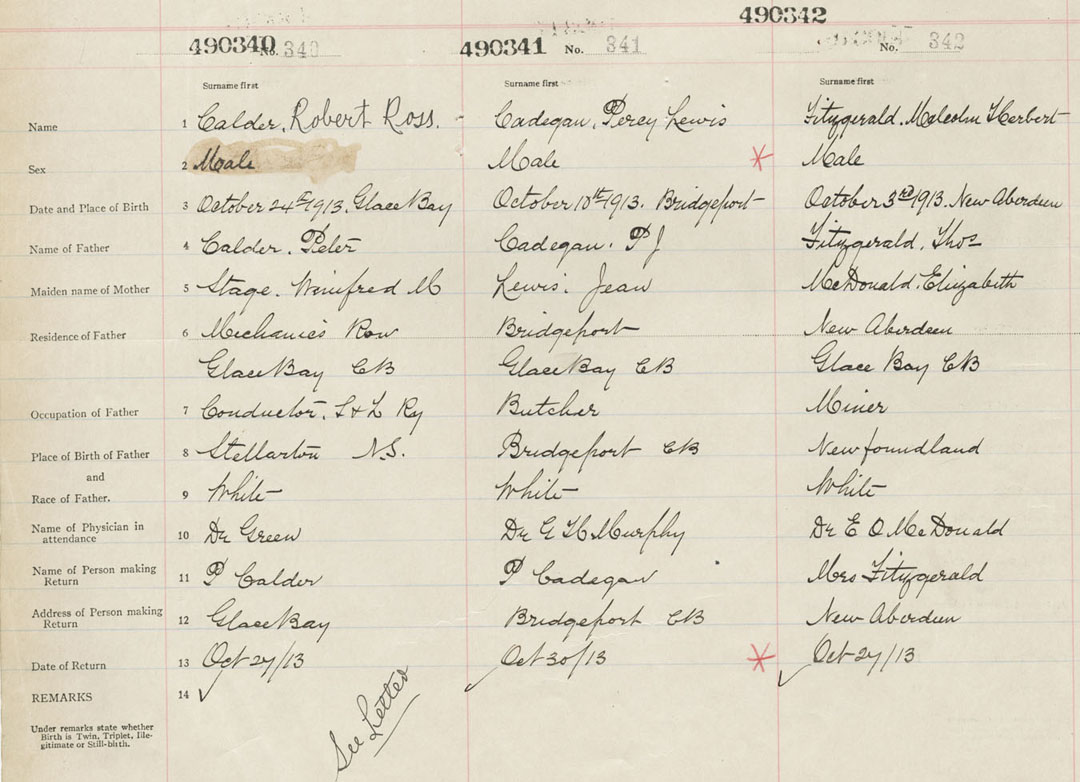 490340 No. 340 490341 No. 341 490342 No. 342
Surname first Surname first Surname first
Name 1 Calder, Robert Ross. Cadegan, Percy Lewis Fitzgerald, Malcolm Herbert
Sex 2 Male Male Male
Date and Place of Birth 3 October 24th 1913. Glace Bay October 10th 1913. Bridgeport October 3rd 1913. New Aberdeen
Name of Father 4 Calder. Peter Cadegan. P J Fitzgerald. Thos
Maiden name of Mother 5 Stage. Winifred M Lewis. Jean McDonald. Elizabeth
Residence of Father 6 Mechanics Row Bridgeport New Aberdeen
Glace Bay CB Glace Bay CB Glace Bay CB
Occupation of Father 7 Conductor. S & L Ry Butcher Miner
Place of Birth of Father 8 Stellarton N.S. Bridgeport CB Newfoundland
and
Race of Father. 9 White White White
Name of Physician in attendance 10 Dr Green Dr G H Murphy Dr E O McDonald
Name of Person making Return 11 P Calder P Cadegan Mrs Fitzgerald
Address of Person making Return 12 Glace Bay Bridgeport CB New Aberdeen
Date of Return 13 Oct 27/13 Oct 30/13 Oct 27/13
REMARKS 14
See Letter
Under remarks state whether
Birth is Twin, Triplet, Ille-
gitimate or Still-birth.